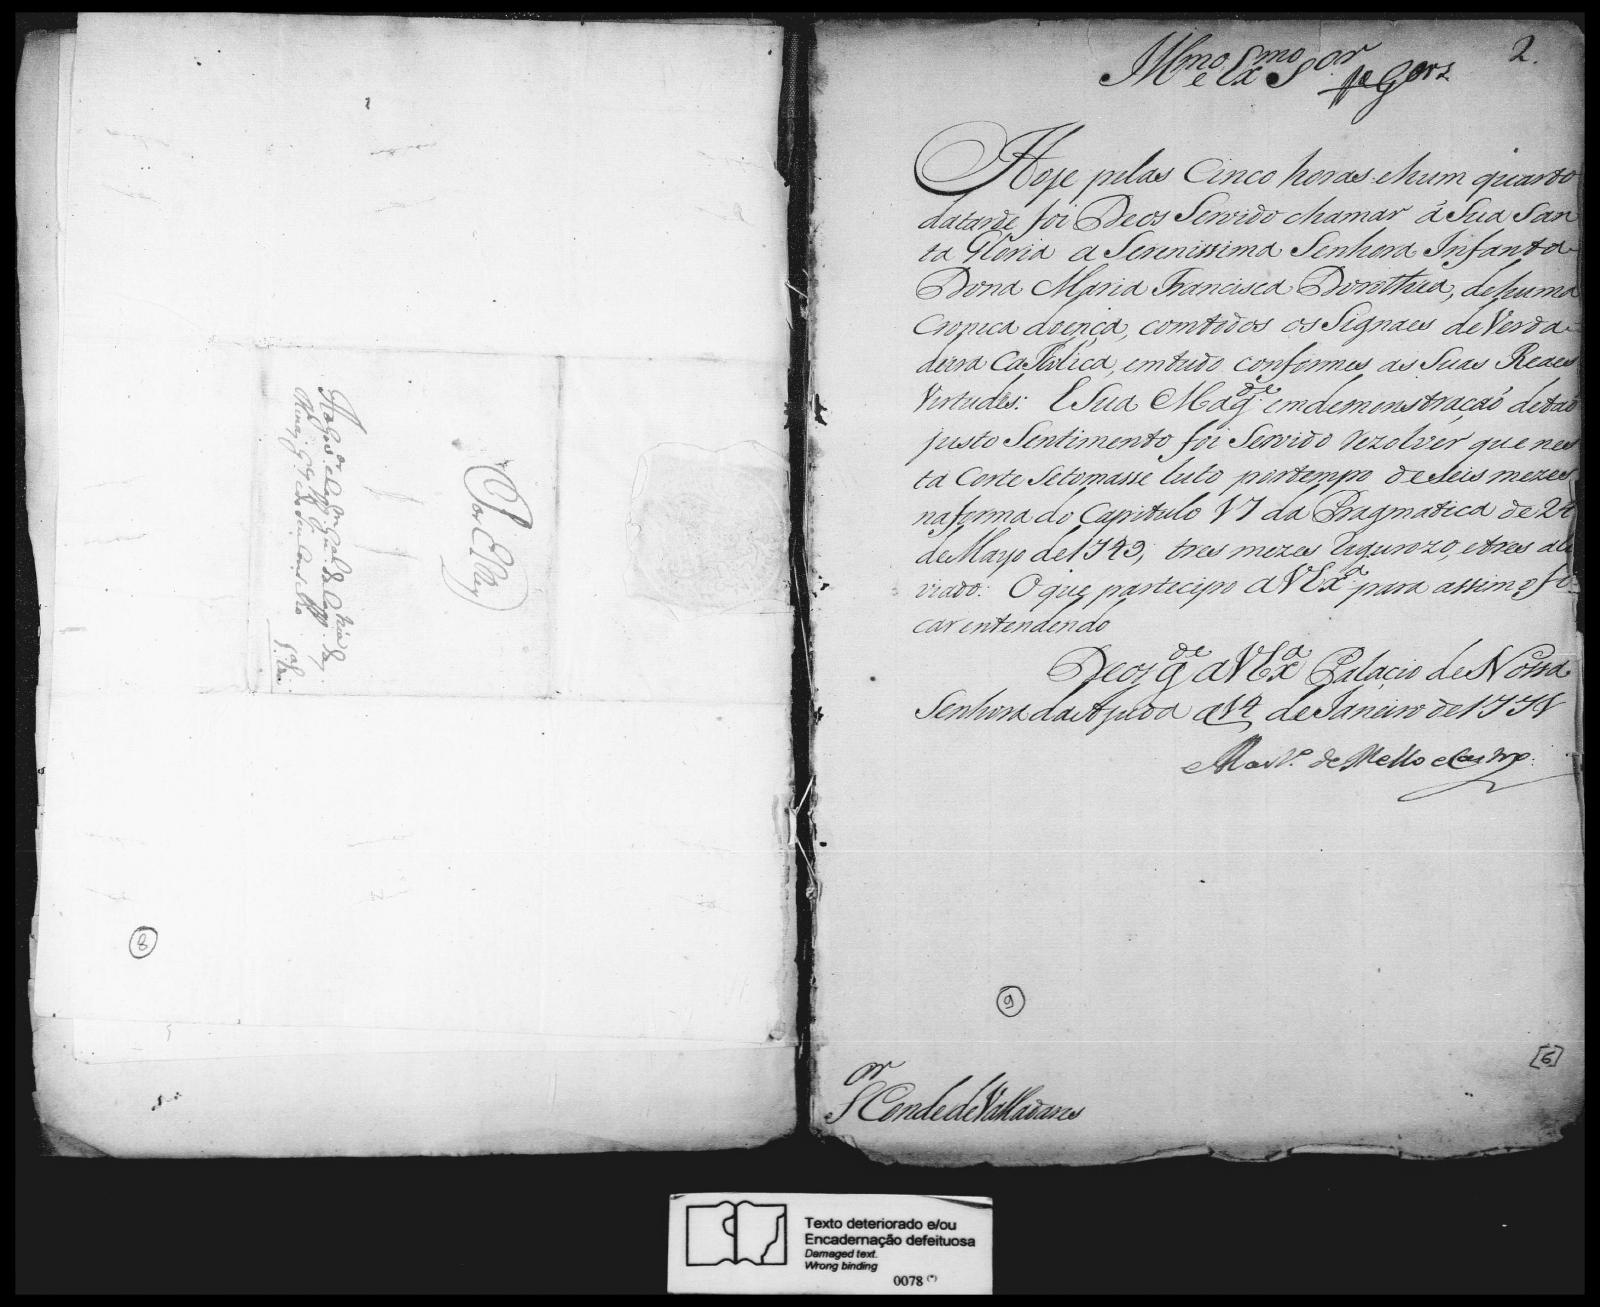 Por El Rey
8
Illmo e Exmo Sor
2.
Hoje pelas Cinco horas e hum quarto
datarde foi Deos Servido chamar á Sua San
ta Gloria a Serenissima Senhora Infanta
Dona Maria Francisca Dorothea, de huma
Cronica doença, comtodos os Signaes de Verda-
deira Catholica, emtudo conformes as Suas Reaes
Virtudes: E Sua Magde emdemonstração detaõ
justo Sentimento foi Servido rezolver que nes
ta Corte Setomasse luto portempo de Seis mezes
naforma do Capitulo 17 da Pragmatica de 24
de Mayo de 1749, tres mezes rigurozo, e tres ali
viado: O que partecipo a V Exa para assim o fi-
car entendendo
Deos gde a V Exa Palacio de Nossa
Senhora da Ajuda a 14 de Janeiro de 1771
Marto. de Mello e Castro
9
[6]
Sor Conde de Valladares
Texto deteriorado e/ou
Encadernação defeituosa
Damaged text.
Wrong binding
0078 (*)